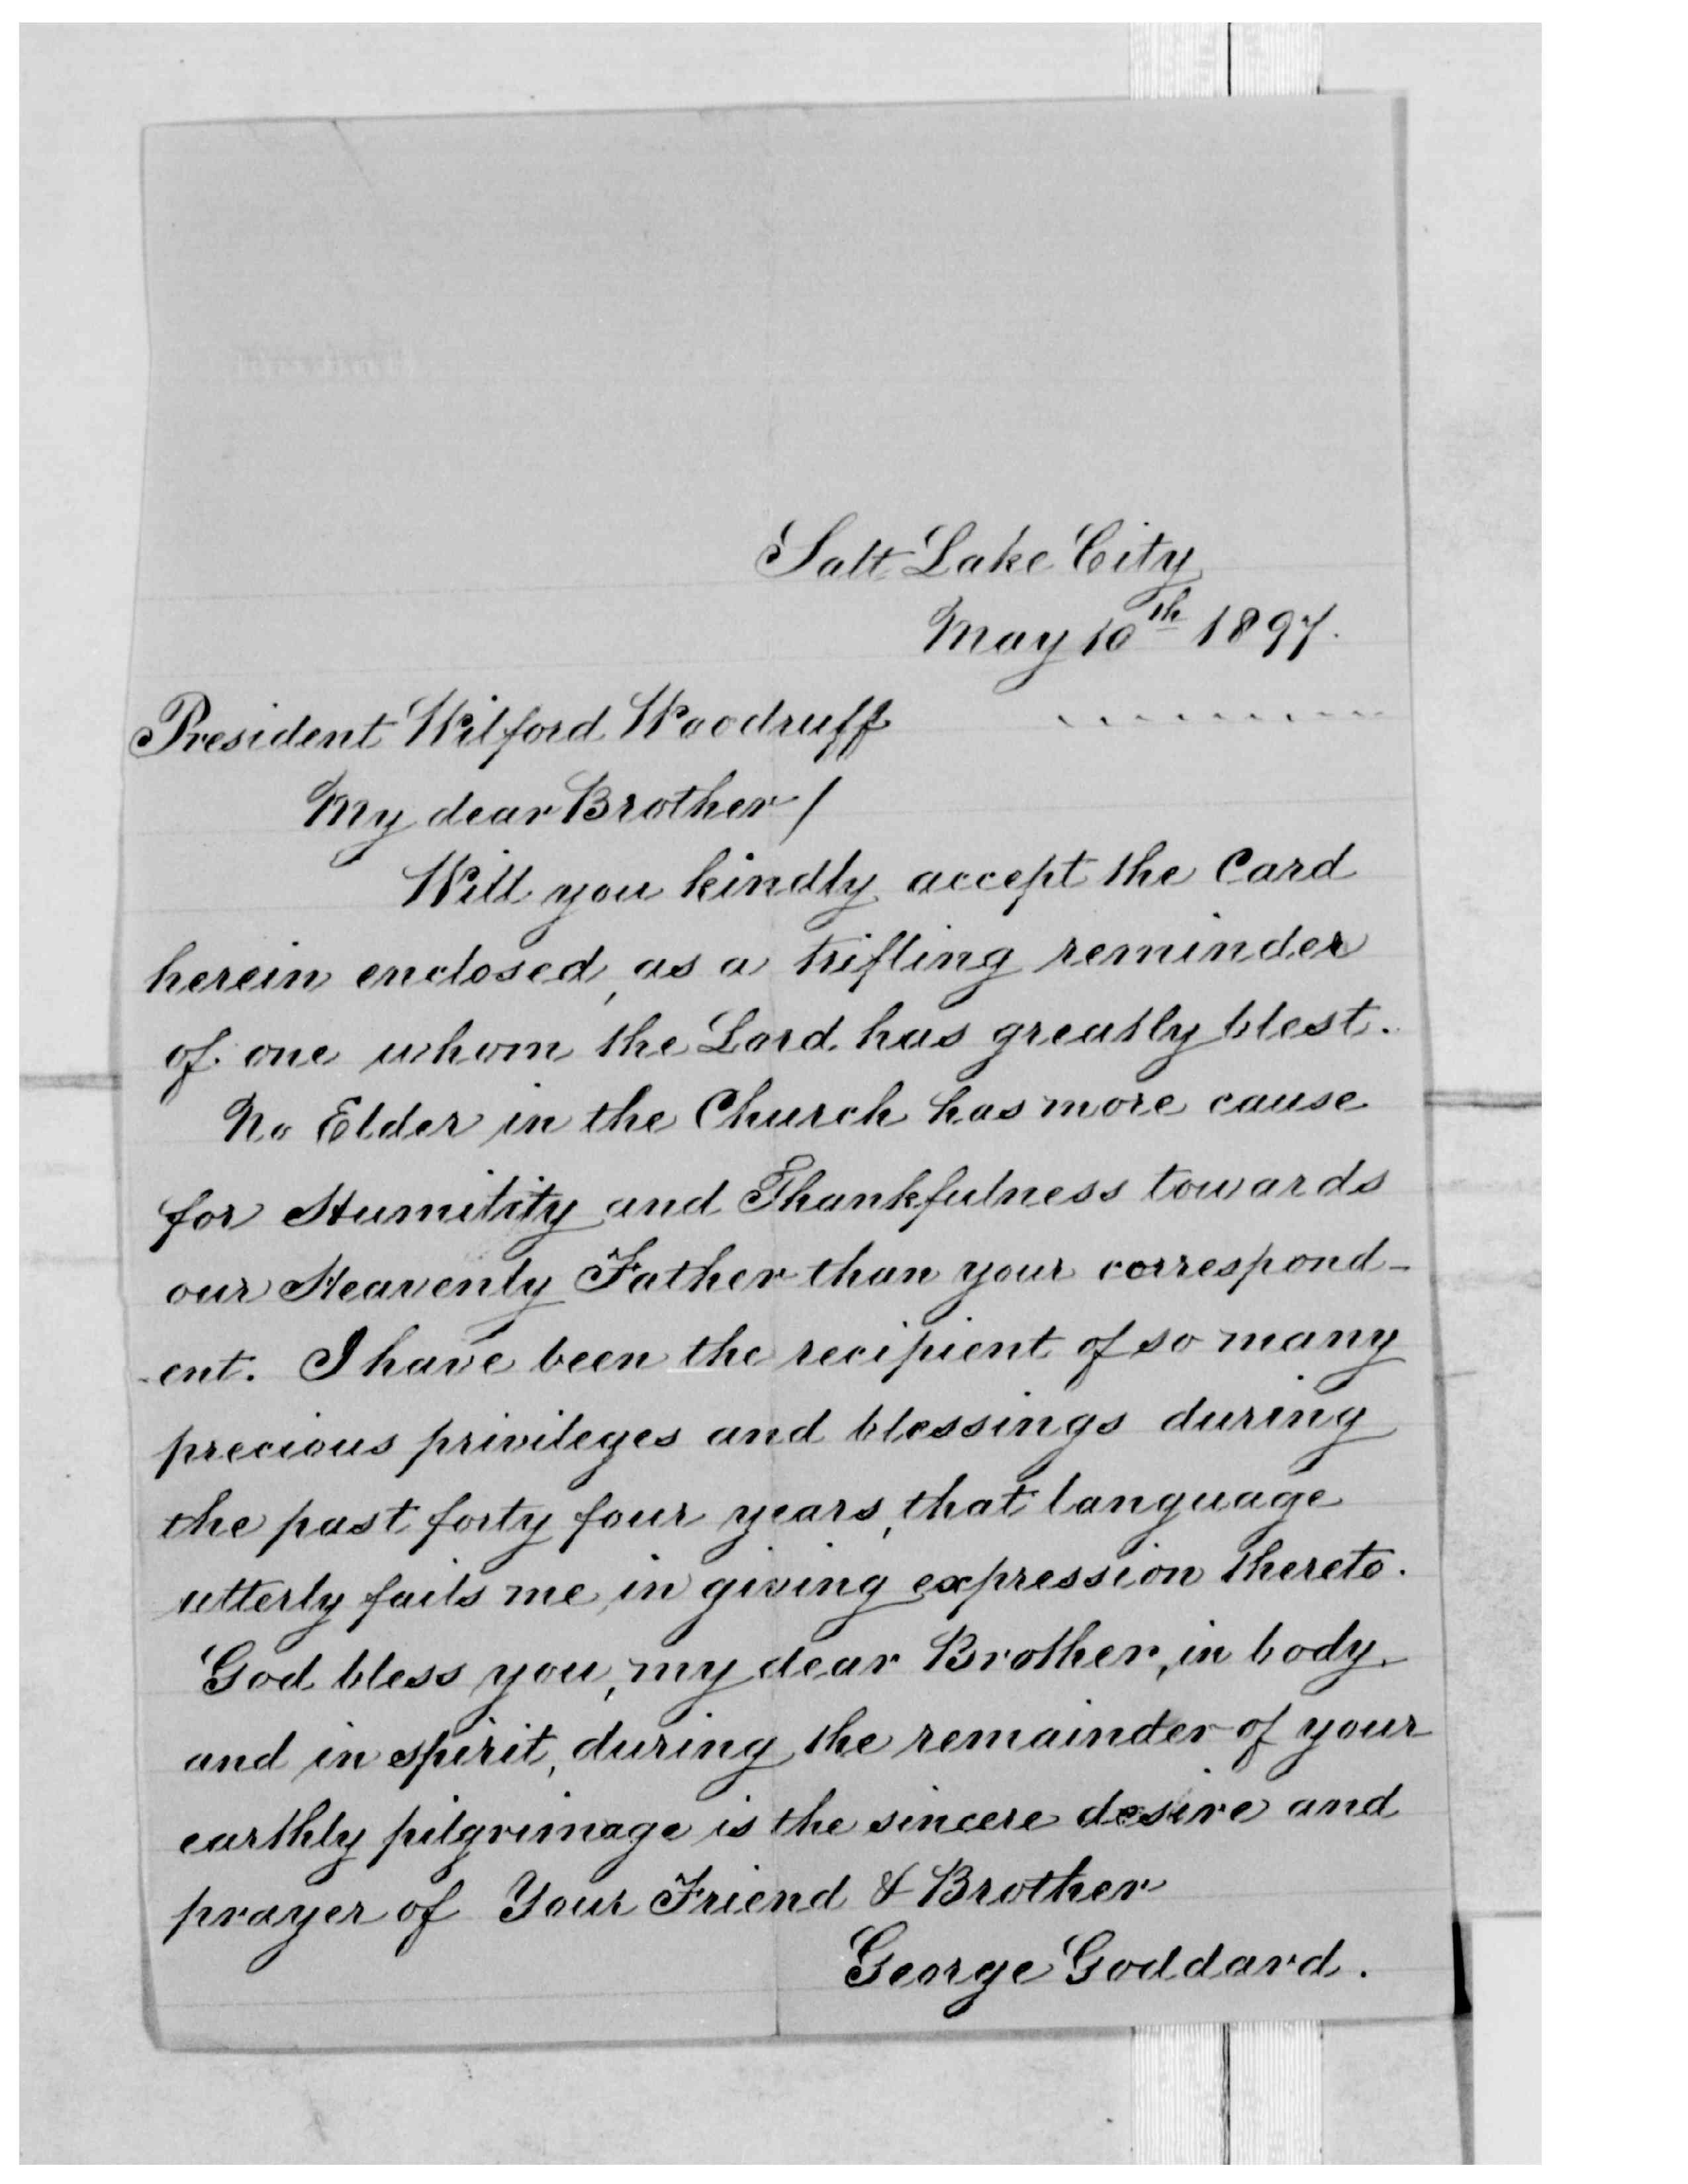 Salt Lake City
May 10th 1897.
President Wilford Woodruff
My dear Brother/
Will you kindly accept the Card
herein enclosed, as a trifling reminder
of one whom the Lord has greatly blest.
No Elder in the Church has more cause
for Humility and Thankfulness towards
our Heavenly Father than your correspond-
-ent. I have been the recipient of so many
precious privileges and blessings during
the past forty four years, that language
utterly fails me, in giving expression thereto.
God bless you, my dear Brother, in body
and in spirit, during the remainder of your
earthly pilgrimage is the sincere desire and
prayer of Your Friend & Brother
George Goddard.